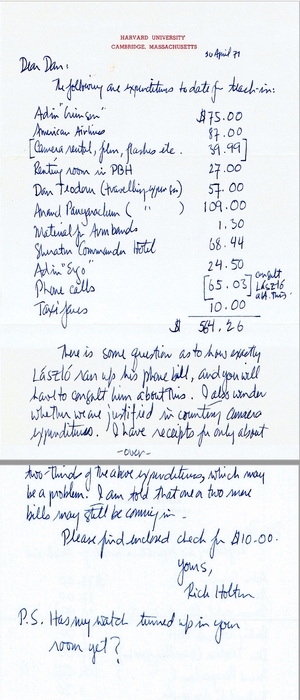 HARVARD UNIVERSITY
CAMBRIDGE, MASSACHUSETTS
30 April 71
Dear Dan:
The following are expenditures to date for teach-in:
Ad in "Crimson" $75.00
American Airlines 87.00
[Camera rental, film, flashes etc. 39.99]
Renting room in PBH 27.00
Dan Teodoru (travelling expenses) 57.00
Anand Panyarachun ( " ) 109.00
Material for Armbands 1.50
Sheraton Commander Hotel 68.44
Ad in "Ergo" 24.50
Phone calls [65.03] consult LÁSZLÓ abt. this.
Taxi fares 10.00
$ 564.26
There is some question as to how exactly
LÁSZLÓ ran up his phone bill, and you will
have to consult him about this. I also wonder
whether we are justified in counting camera
expenditures. I have receipts for only about
-over-
two-thirds of the above expenditures, which may
be a problem. I am told that one or two more
bills may still be coming in.
Please find enclosed check for $10.00.
Yours,
Rich Holton
P.S. Has my watch turned up in your
room yet?